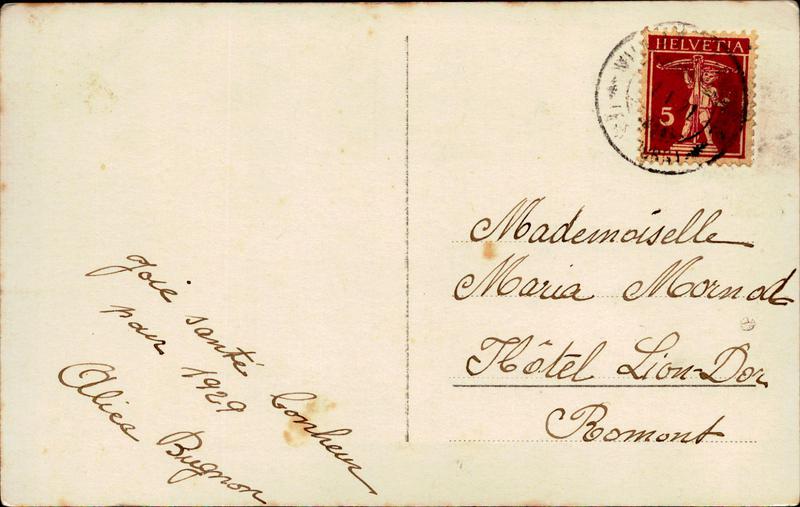 HELVETIA
5
Mademoiselle
Maria Mornod
Hôtel Lion-Dor
Romont
Joie santé bonheur
pour 1929
Alice Bugnon